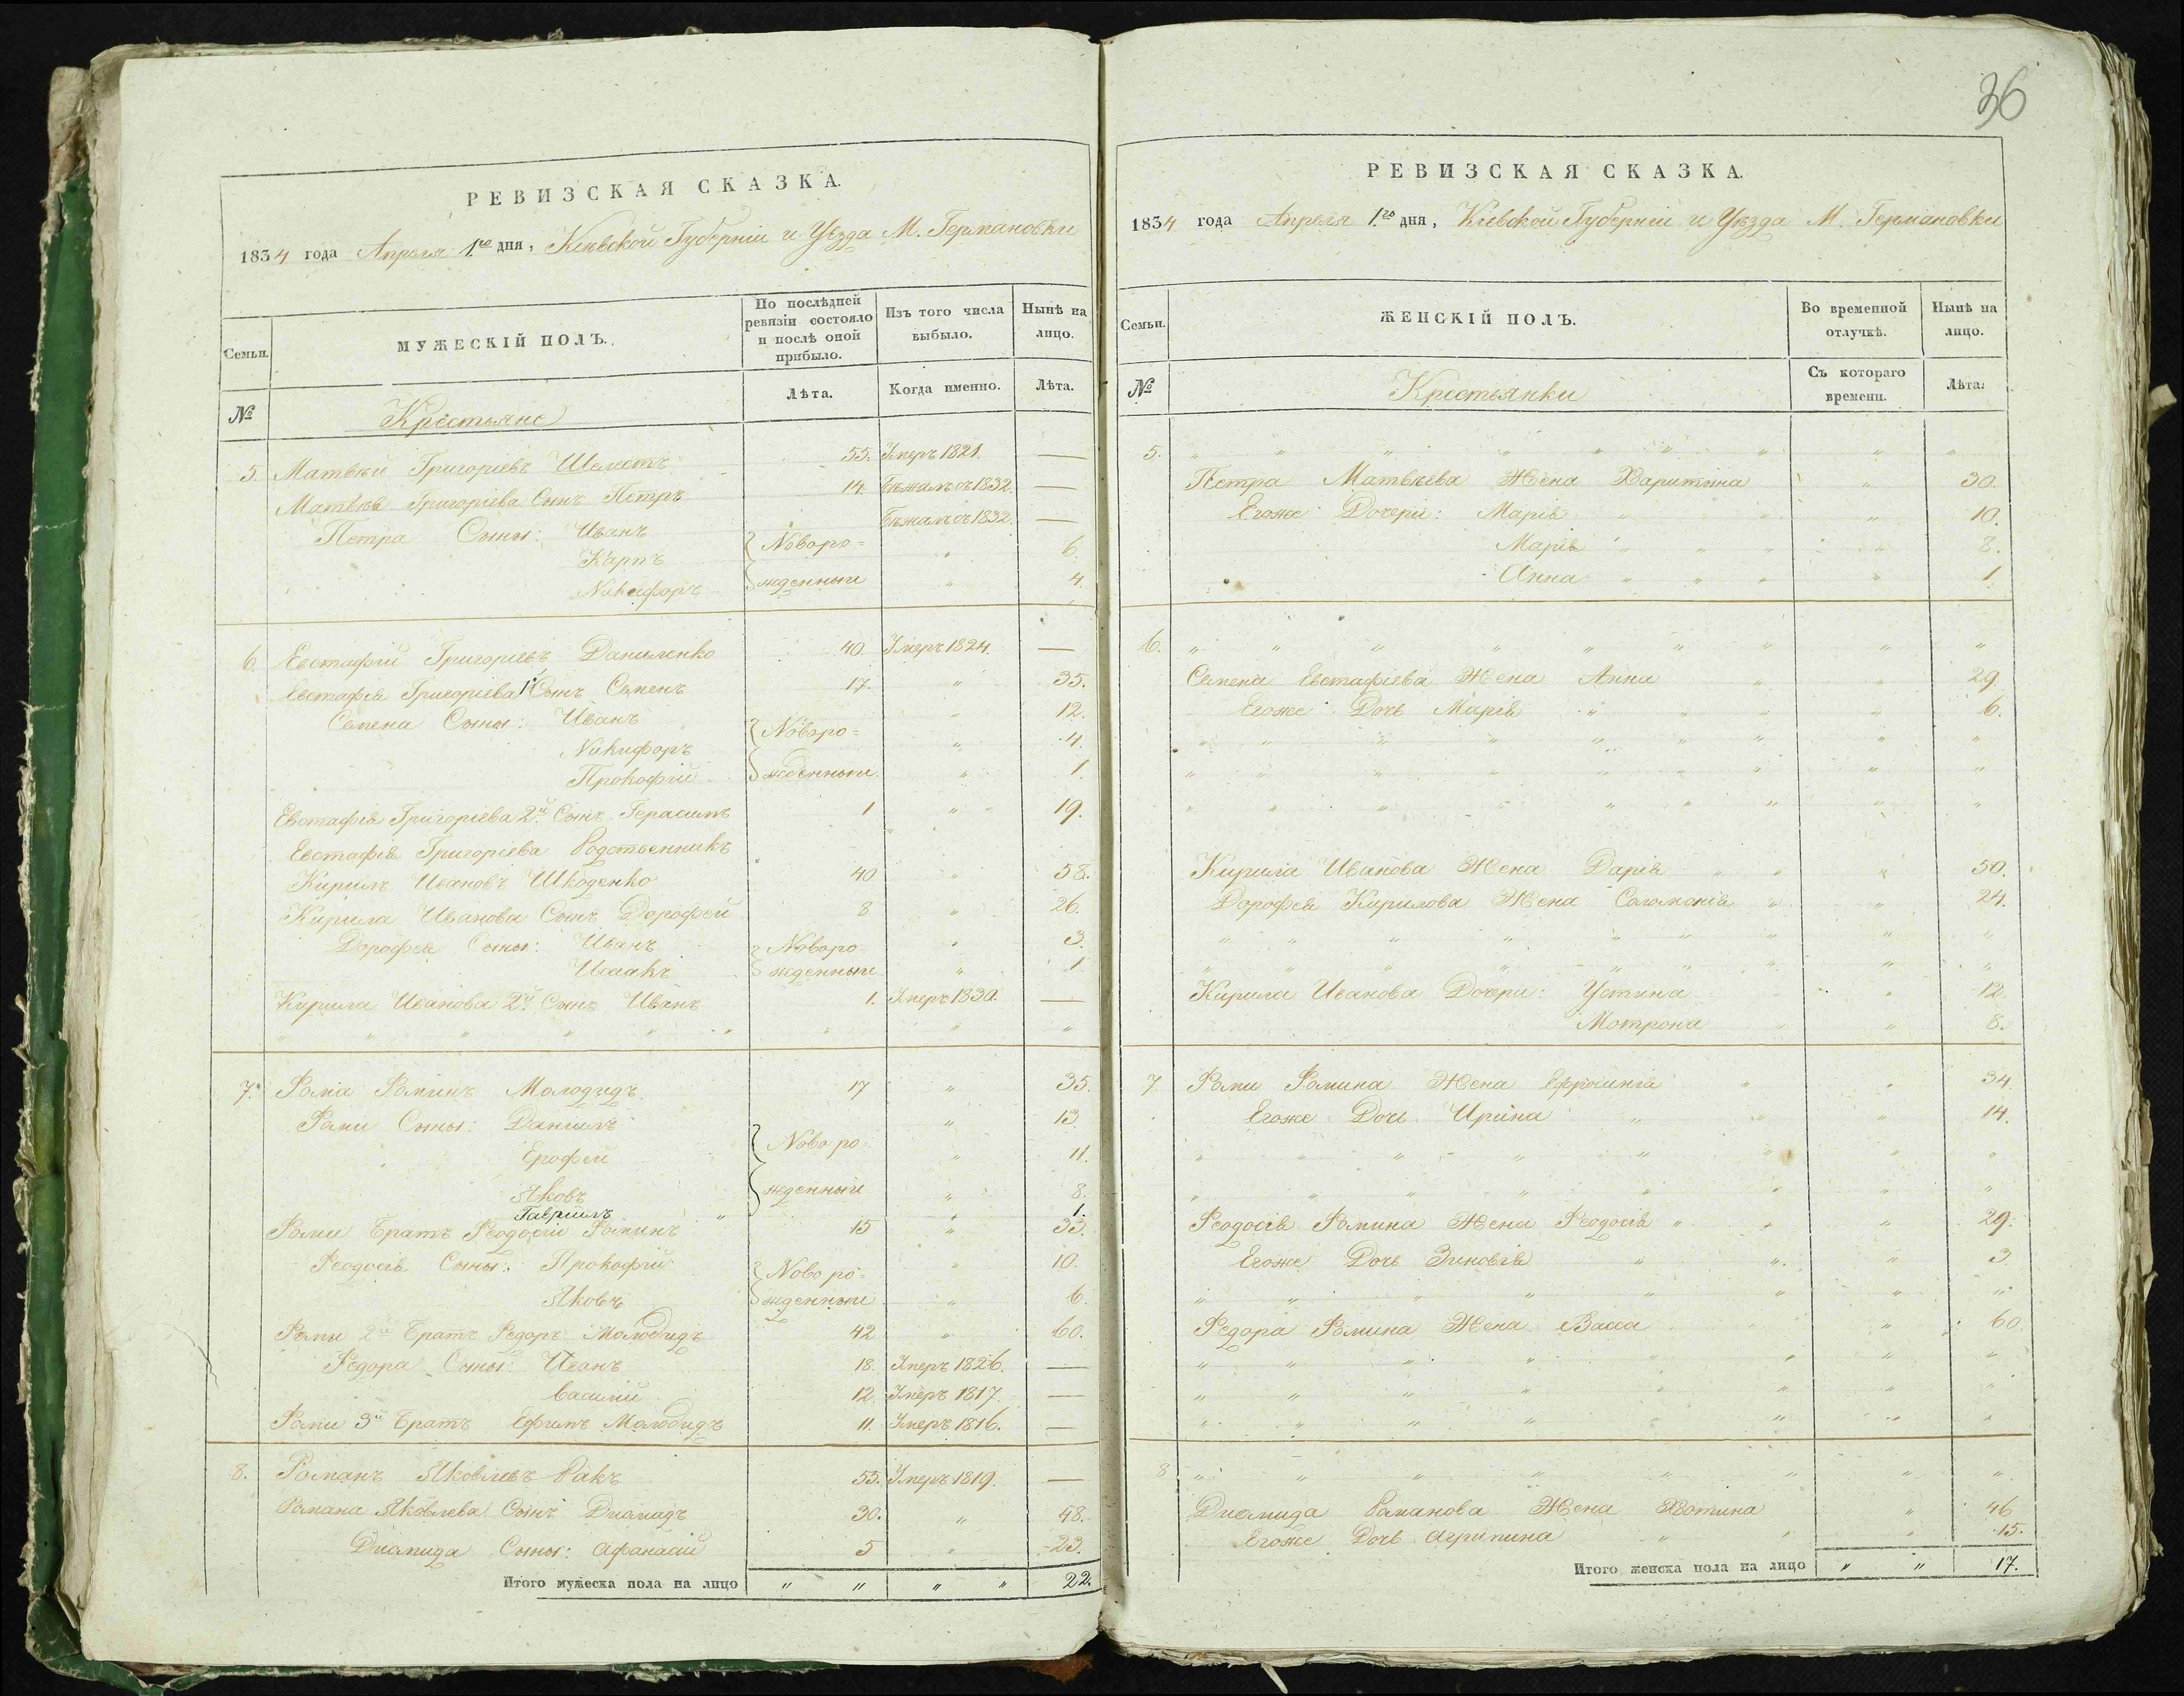 36
РЕВИЗСКАЯ СКАЗКА.
1834 года Апреля 1го дня, Кіевской Губерніи и Уезда М. Германовки
Семьи.
МУЖЕСКІЙ ПОЛЪ.
По послѣдней ревизіи состояло и послѣ оной прибыло.
Изъ того числа выбыло.
Нынѣ на лицо.
№
Крестьяне
Лѣта.
Когда именно.
Лѣта.
5. Матвѣй Григоріевъ Шелестъ 55. Умеръ 1821. —
Матвѣя Григоріева Сынъ Петръ 14. Бѣжалъ съ 1832. —
Петра Сыны: Иванъ Бѣжалъ съ 1832. —
Карпъ Новоро= " 6.
Никифоръ жденныи " 4.
6. Евстафій Григоріевъ Даниленко 40. Умеръ 1824. —
Евстафія Григоріева 1й Сынъ Семенъ 17. " 35.
Семена Сыны: Иванъ " 12.
Никифоръ Новоро= " 4.
Прокофій жденныи " 1.
Евстафія Григоріева 2й Сынъ Герасимъ 1 " 19.
Евстафія Григоріева Родственникъ
Кирилъ Ивановъ Шкоденко 40 " 58.
Кирила Иванова Сынъ Дорофей 8 " 26.
Дорофея Сыны: Иванъ Новоро " 3.
Исаакъ жденныи " 1
Кирила Иванова 2й Сынъ Иванъ 1. Умеръ 1830. —
" " " " " " " " "
7. Ѳома Ѳоминъ Молодидъ 17 " 35.
Ѳомы Сыны: Даниилъ " 13.
Ерофей Новоро= " 11.
Яковъ жденныи " 8.
Гавриилъ " " 1.
Ѳомы Братъ Ѳеодосій Ѳоминъ 15 " 33.
Ѳеодосія Сыны: Прокофій Новоро= " 10.
Яковъ жденныи " 6.
Ѳомы 2й Братъ Ѳедоръ Молодидъ 42 " 60.
Ѳедора Сыны: Иванъ 18. Умеръ 1826. —
Василій 12 Умеръ 1817. —
Ѳомы 3й Братъ Ефимъ Молодидъ 11. Умеръ 1816. —
8. Романъ Яковлевъ Ракъ 55. Умеръ 1819. —
Романа Яковлева Сынъ Диомидъ 30. " 48.
Диомида Сыны: Афанасій 5 " 23.
Итого мужеска пола на лицо " " " " 22.
РЕВИЗСКАЯ СКАЗКА.
1834 года Апреля 1го дня, Кіевской Губерніи и Уезда М. Германовки
Семьи.
ЖЕНСКІЙ ПОЛЪ.
Во временной отлучкѣ.
Нынѣ на лицо.
№
Крестьянки
Съ котораго времени.
Лѣта.
5. " " " " " " " " "
Петра Матвѣева Жена Харитина " 30.
Егоже Дочери: Марія " " " 10.
Марія " " " " 8.
Анна " " " " 1.
6. " " " " " " " " "
Семена Евстафіева Жена Анна " " 29.
Егоже Дочь Марія " " " " 6.
" " " " " " " " "
" " " " " " " " "
" " " " " " " " "
Кирила Иванова Жена Дарія " " " 50.
Дорофея Кирилова Жена Соломонія " " 24.
" " " " " " " " "
" " " " " " " " "
Кирила Иванова Дочери: Устина " 12.
Мотрона " " 8.
7. Ѳомы Ѳомина Жена Ефросинія " " 34.
Егоже Дочь Ирина " " " 14.
" " " " " " " "
" " " " " " " "
Ѳеодосія Ѳомина Жена Ѳеодосія " " " 29.
Егоже Дочь Зиновія " " " 3
" " " " " " " "
Ѳедора Ѳомина Жена Васса " 60
" " " " " " " "
" " " " " " " "
" " " " " " " "
8 " " " " " " " "
Диомида Романова Жена Хотина " 46
Егоже Дочь Агрипина " " " 15.
Итого женска пола на лицо " " 17.